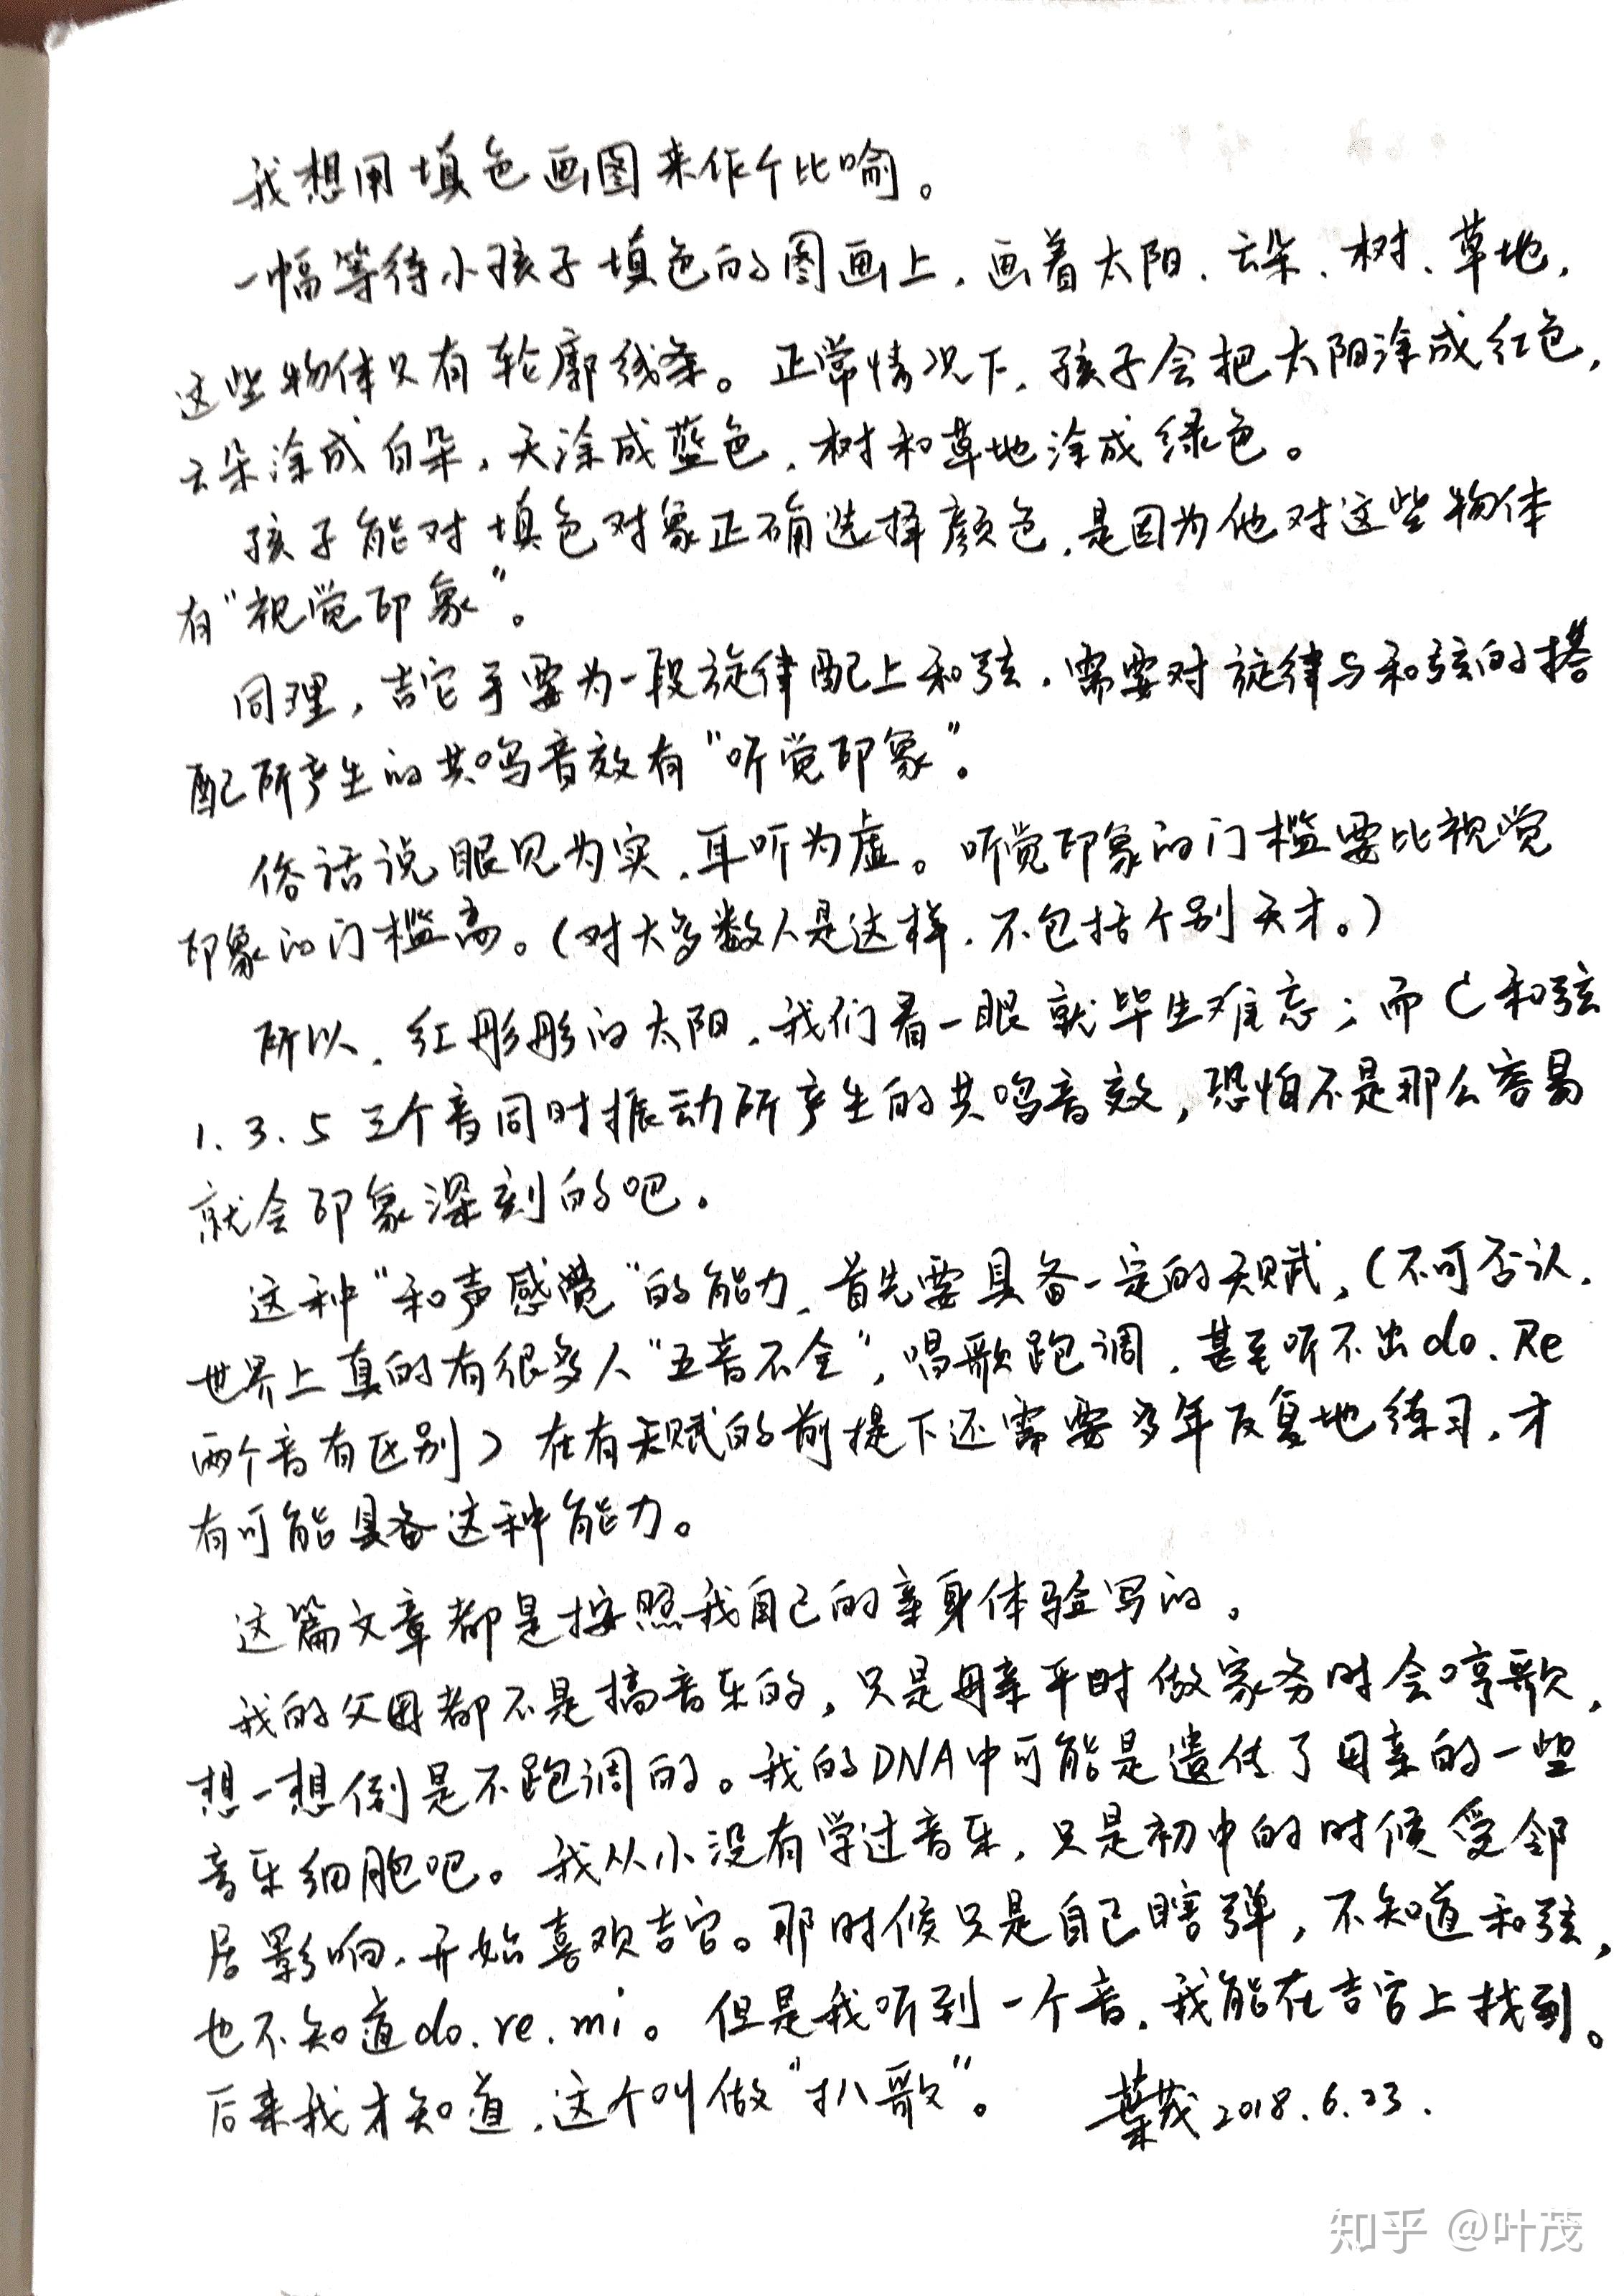 我想用填色画图来作个比喻。
一幅等待小孩子填色的图画上，画着太阳、云朵、树、草地，
这些物体只有轮廓线条。正常情况下，孩子会把太阳涂成红色，
云朵涂成白朵，天涂成蓝色，树和草地涂成绿色。
孩子能对填色对象正确选择颜色，是因为他对这些物体
有“视觉印象”。
同理，吉它手要为一段旋律配上和弦，需要对旋律与和弦的搭
配所产生的共鸣音效有“听觉印象”。
俗话说眼见为实，耳听为虚。听觉印象的门槛要比视觉
印象的门槛高。（对大多数人是这样，不包括个别天才。）
所以，红彤彤的太阳，我们看一眼就毕生难忘；而C和弦
1.3.5三个音同时振动所产生的共鸣音效，恐怕不是那么容易
就会印象深刻的吧。
这种“和声感觉”的能力，首先要具备一定的天赋，（不可否认，
世界上真的有很多人“五音不全”，唱歌跑调，甚至听不出do、Re
两个音有区别）在有天赋的前提下还需要多年反复地练习，才
有可能具备这种能力。
这篇文章都是按照我自己的亲身体验写的。
我的父母都不是搞音乐的，只是母亲平时做家务时会哼歌，
想一想倒是不跑调的。我的DNA中可能是遗传了母亲的一些
音乐细胞吧。我从小没有学过音乐，只是初中的时候受邻
居影响，开始喜欢吉它。那时候只是自己瞎弹，不知道和弦，
也不知道do.re.mi。但是我听到一个音，我能在吉它上找到。
后来我才知道，这个叫做“扒歌”。 葉茂2018.6.23.
知乎 @叶茂